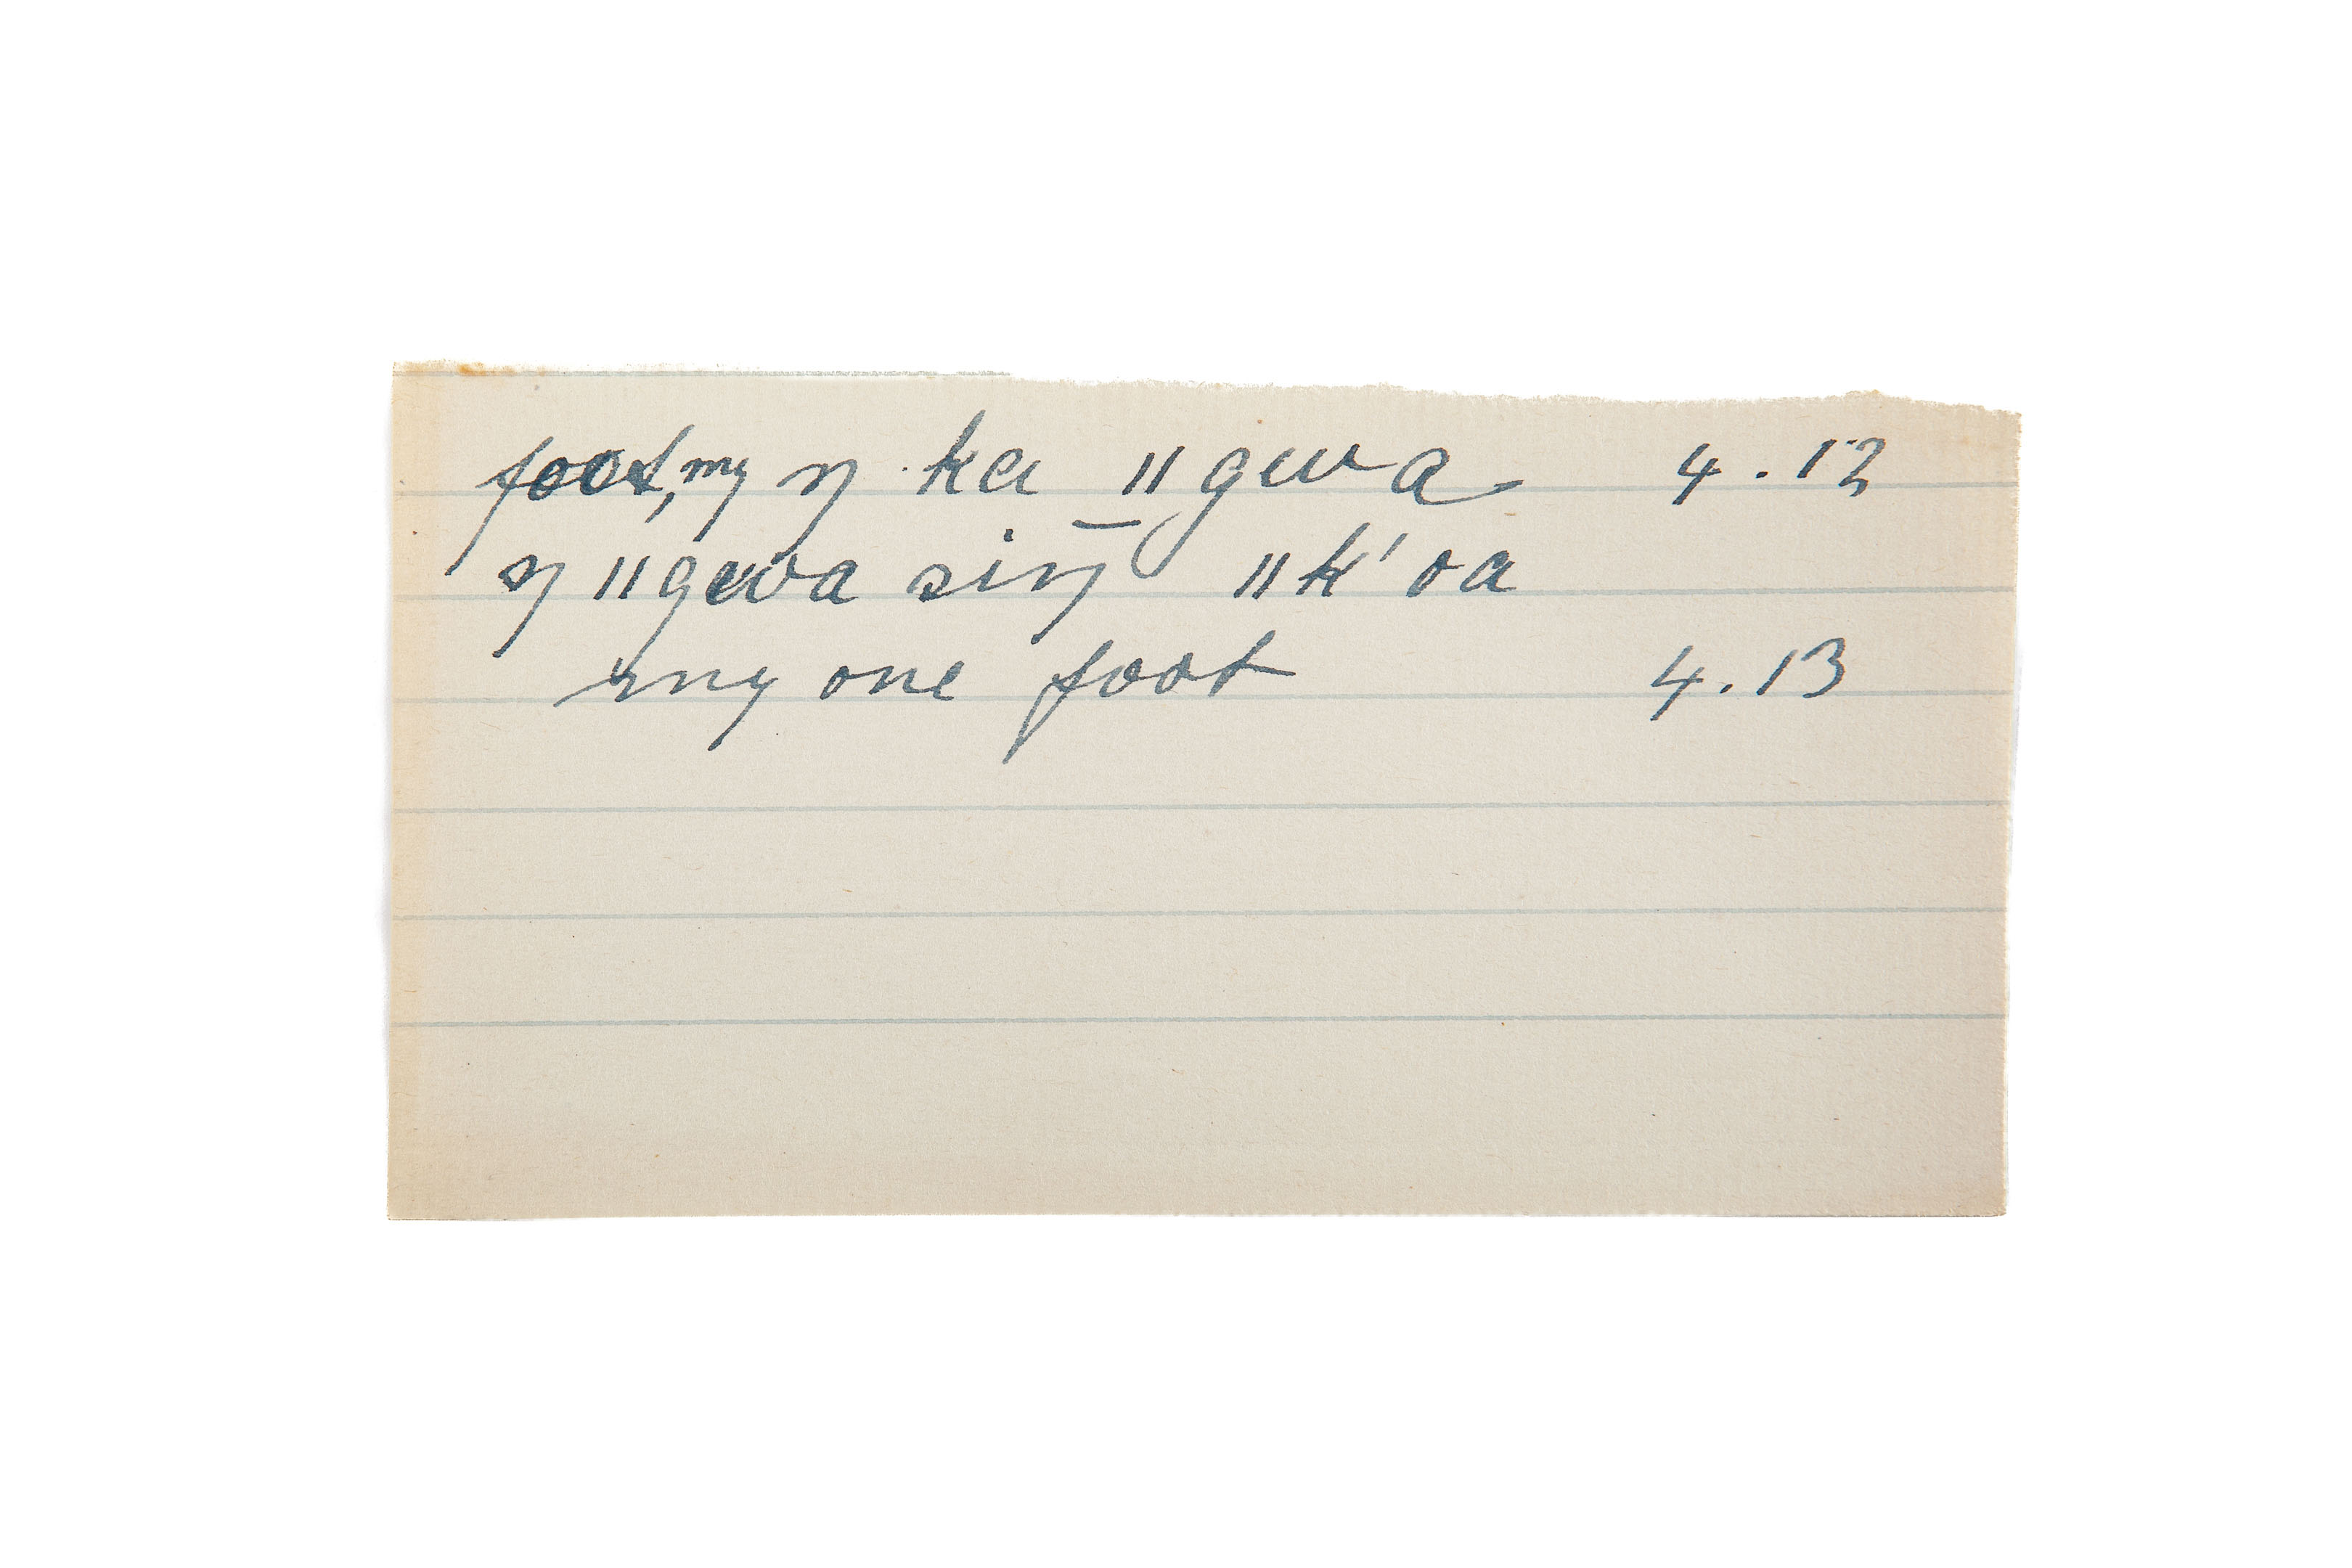 foot, my ŋ ka ǁgwa 4.12
ŋ ǁgwa siŋ̄ ǁk'oa
my one foot 4.13